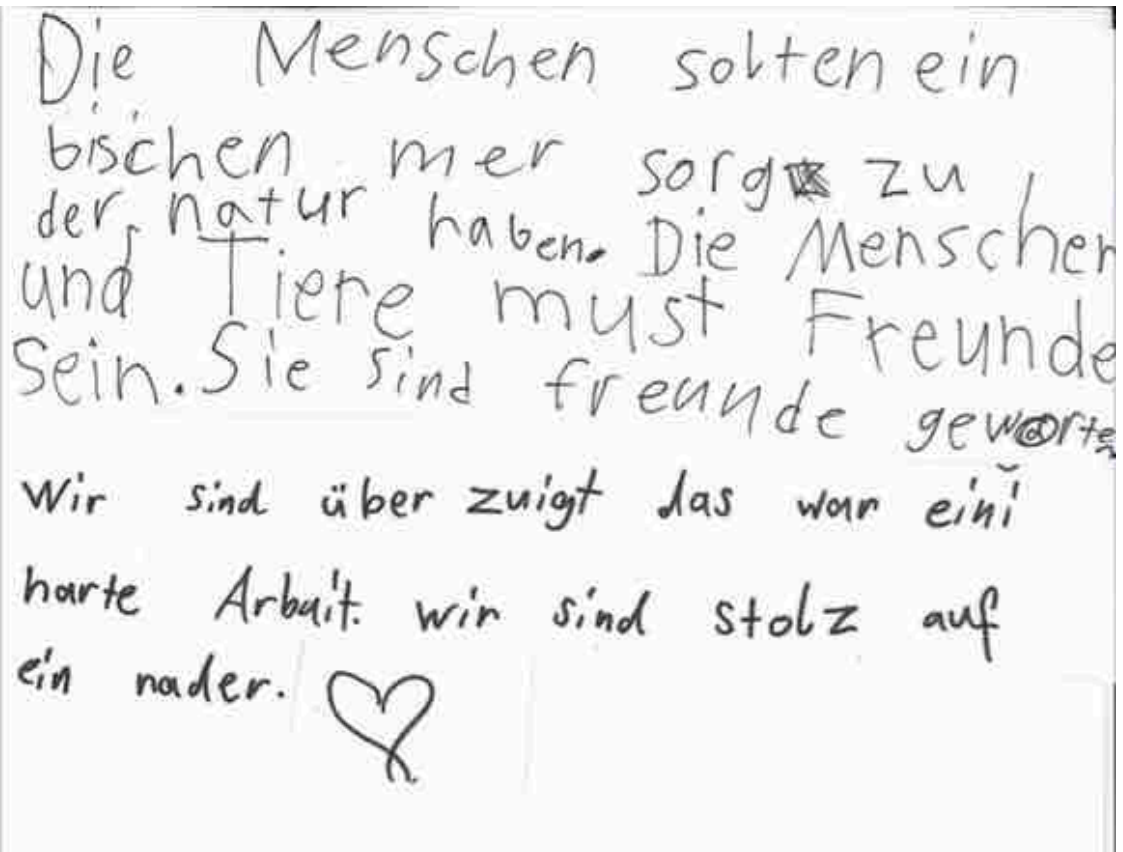 Die Menschen solten ein
bischen mer sorg zu
der natur haben. Die Menschen
und Tiere must Freunde
Sein. Sie sind freunde geworten
Wir sind über zuigt das war eini
harte Arbait. wir sind stolz auf
ein nader.